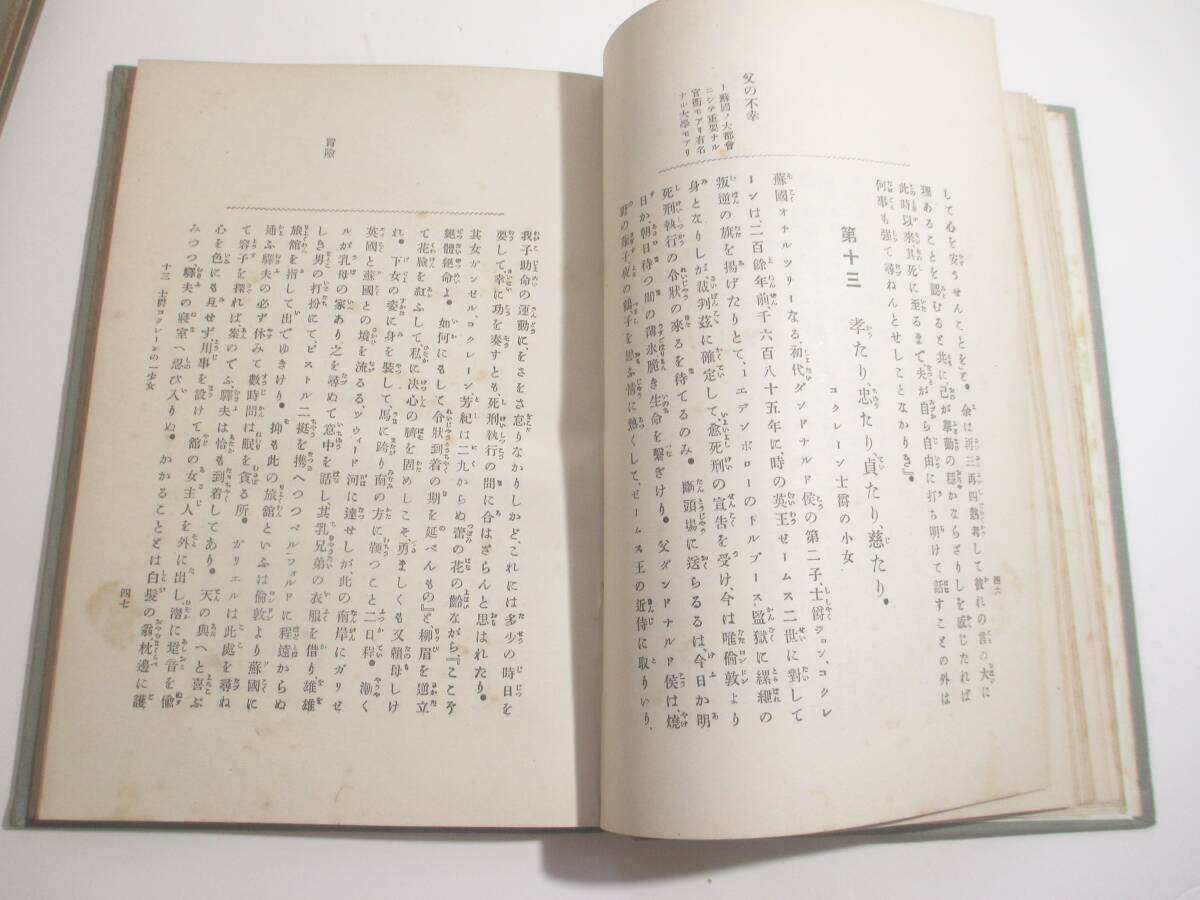 四六
して心を安うせんことを』と。余は再三再四熟考して彼れの言の大に
理あることを認むると共に、己が擧動の穩かならざりしを感じたれば
此時以來、其死に至るまで夫が自ら自由に打ち明けて話すことの外は
何事も強て尋ねんとせしことなかりき』。
第十三 孝たり、忠たり、貞たり、慈たり。
コクレーン士爵の小女
父の不幸
1蘇國ノ大都會
ニシテ重要ナル
官衙モアリ有名
ナル大學モアリ
蘇國オナルツリーなる、初代ダンドナルド侯の第二子、士爵ヂョン、コクレ
ーンは、二百餘年前千六百八十五年に、時の英王ゼームス二世に對して
叛逆の旗を揚げたりとて、1エデンボローのトルブース、監獄に縲絏の
身となりしが、裁判茲に確定して、愈死刑の宣告を受け、今は唯倫敦より
死刑執行の令狀の來るを待てるのみ。斷頭場に送らるるは、今日か明
日か、朝日待つ間の薄氷脆き生命を繋ぎけり。父ダンドナルド侯は、燒
野の雉子夜の鶴、子を思ふ情に熱くして、ゼームス王の近侍に取りいり、
冒險
我子助命の運動に、をさをさ怠りなかりしかど、これには多少の時日を
要して幸に功を奏すとも死刑執行の間に合はざらんと思はれたり。
其女ガンゼル、コクレーン芳紀は二九からぬ蕾の花の齡ながら、『ここぞ
絕體絕命よ。如何にもして令狀到着の期を延べんもの』と、柳眉を逆立
て花臉を紅ふして、私に決心の臍を固めしこそ、勇ましくも又賴母しけ
れ。下女の姿に身を裝して、馬に跨り南の方に鞭つこと二日程。漸く
英國と蘇國との境を流るる、ツウィード河に達せしが、此の南岸にガリゼ
ルが乳母の家あり之を尋ぬて意中を話し、其乳兄弟の衣服を借り、雄雄
しき男の打扮にて、ピストル二挺を携へつつベルフォルドに程遠からぬ
旅館を指して出でゆきけり。抑も此の旅館といふは倫敦より蘇國に
通ふ驛夫の必ず休みて數時間は眠を貪る所。ガリエルは此處を尋ね
て容子を探れば案のでふ、驛夫は恰も到着してあり。天の與へと喜ぶ
心を色にも見せず用事を設けて館の女主人を外に出し、潜に跫音を偸
みつつ驛夫の寢室へ忍び入りぬ。かかることとは白髮の翁、枕邊に護
十三 士爵コクレーンの一少女
四七